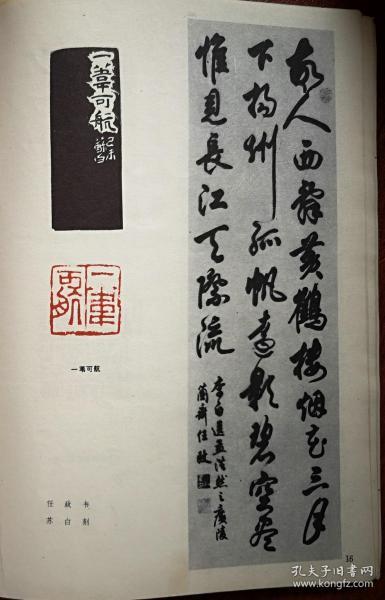 故人西辞黄鹤楼烟花三月
下扬州孤帆远影碧空尽
惟见长江天际流
李白送孟浩然之广陵
兰斋任政
一苇可航
己未
一苇可航
一苇可航
任政书
苏白刻
16
孔夫子旧书网
www.kongfz.com